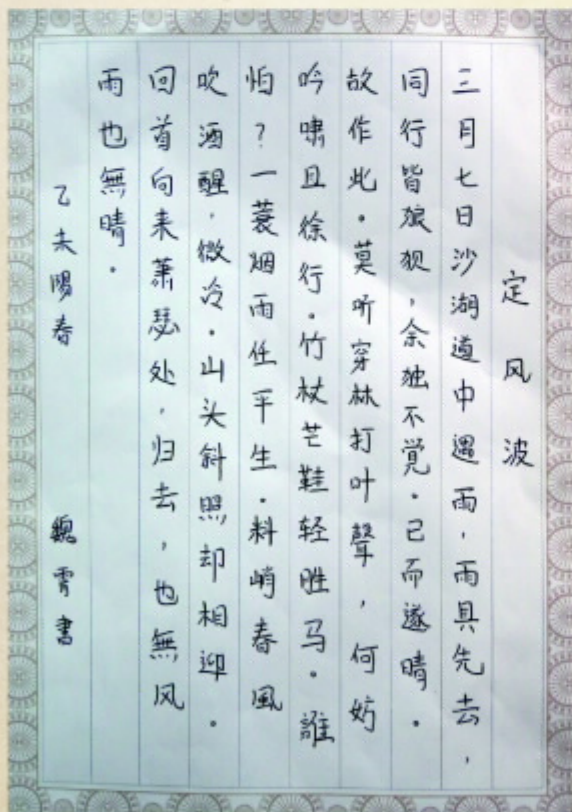 定风波
三月七日沙湖道中遇雨，雨具先去，
同行皆狼狈，余独不觉。已而遂晴。
故作此。莫听穿林打叶聲，何妨
吟啸且徐行。竹杖芒鞋轻胜马。誰
怕？一蓑烟雨任平生。料峭春風
吹酒醒，微冷。山头斜照却相迎。
回首向来萧瑟处，归去，也無风
雨也無晴。
乙未陽春 魏霄書